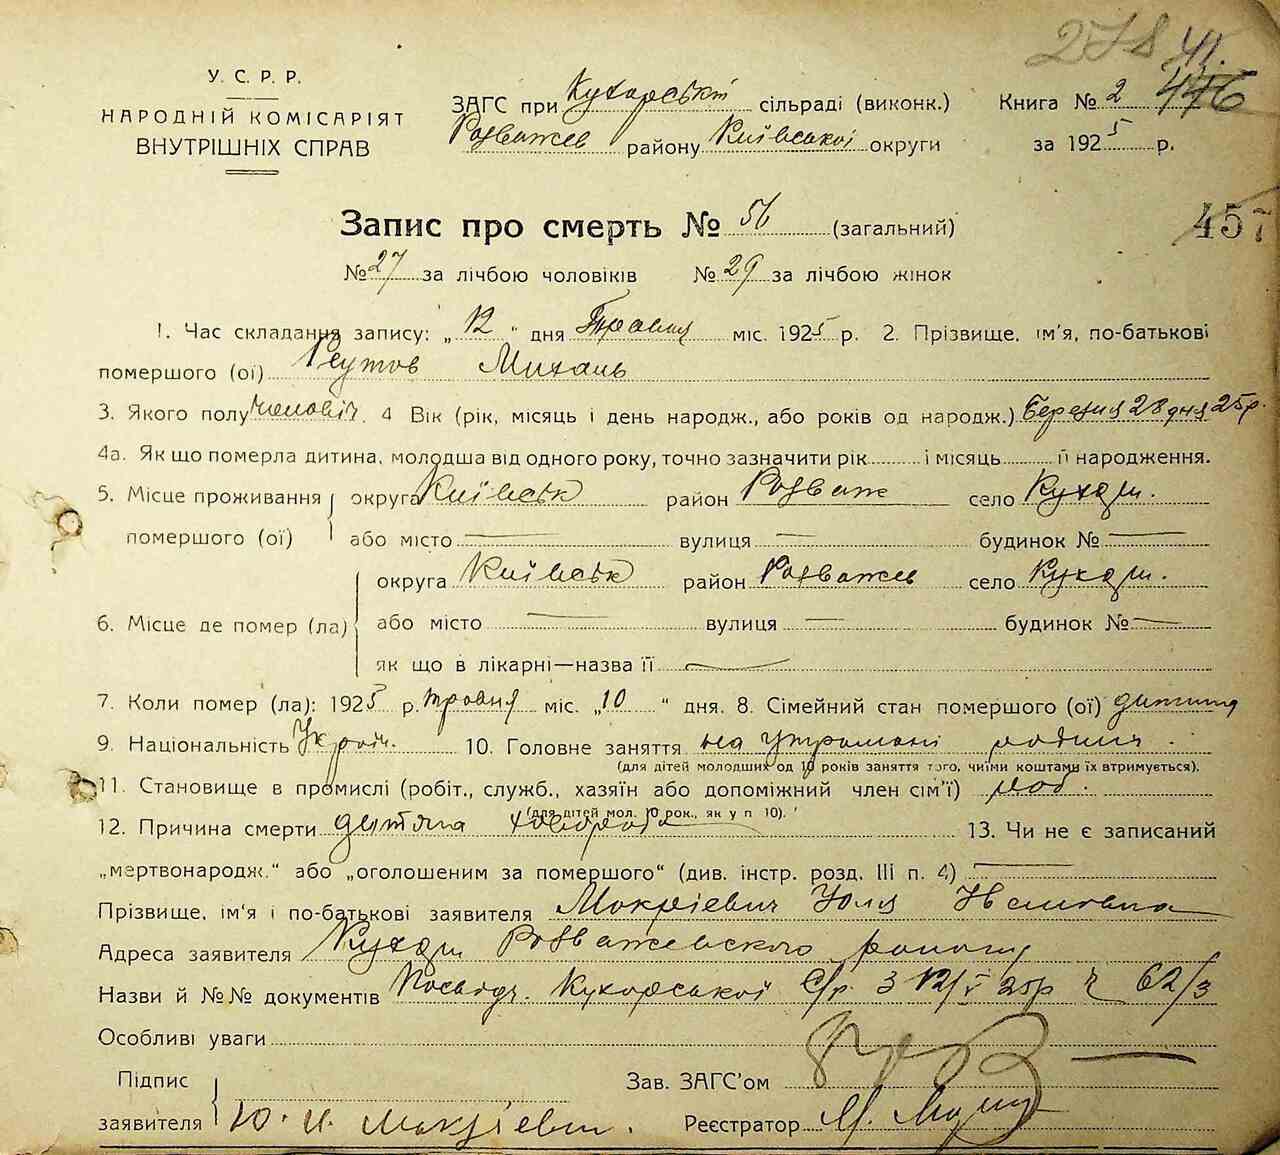 278 41.
У. С. Р. Р.
НАРОДНІЙ КОМІСАРІЯТ
ВНУТРІШНІХ СПРАВ
ЗАГС при Кухарській сільраді (виконк.) Книга № 2 446
Розважев району Київської округи за 1925 р.
Запис про смерть № 56 (загальний) 457
№ 27 за лічбою чоловіків № 29 за лічбою жінок
1. Час складання запису: „12" дня Травня міс. 1925 р. 2. Прізвище, ім'я, по-батькові
помершого (ої) Реутов Михаль
3. Якого полу чоловіч. 4 Вік (рік, місяць і день народж., або років од народж.) Березня 28 дня 25р.
4а. Як що померла дитина, молодша від одного року, точно зазначити рік і місяць її народження.
5. Місце проживання округа Київськ район Розваж село Кухари.
помершого (ої) або місто — вулиця — будинок № —
округа Київськ район Розважев село Кухари.
6. Місце де помер (ла) або місто — вулиця — будинок № —
як що в лікарні—назва її —
7. Коли помер (ла): 1925 р. травня міс. „10" дня. 8. Сімейний стан помершого (ої) дитина
9. Національність Україн. 10. Головне заняття на утримані родини.
(для дітей молодших од 10 років заняття того, чиїми коштами їх втримується).
11. Становище в промислі (робіт., служб., хазяїн або допоміжний член сім'ї) роб.
(для дітей мол. 10 рок., як у п 10).
12. Причина смерти дитяча хвороба 13. Чи не є записаний
„мертвонародж." або „оголошеним за помершого" (див. інстр. розд. III п. 4) —
Прізвище, ім'я і по-батькові заявителя Мокрієвич Юлія
Адреса заявителя Кухари Розважевського району
Назви й №№ документів Посвідч. Кухарської С/р. з 12/V 25р ч 62/3
Особливі уваги —
Підпис Зав. ЗАГС'ом
заявителя Ю. И. Мокрієвич. Реєстратор М.